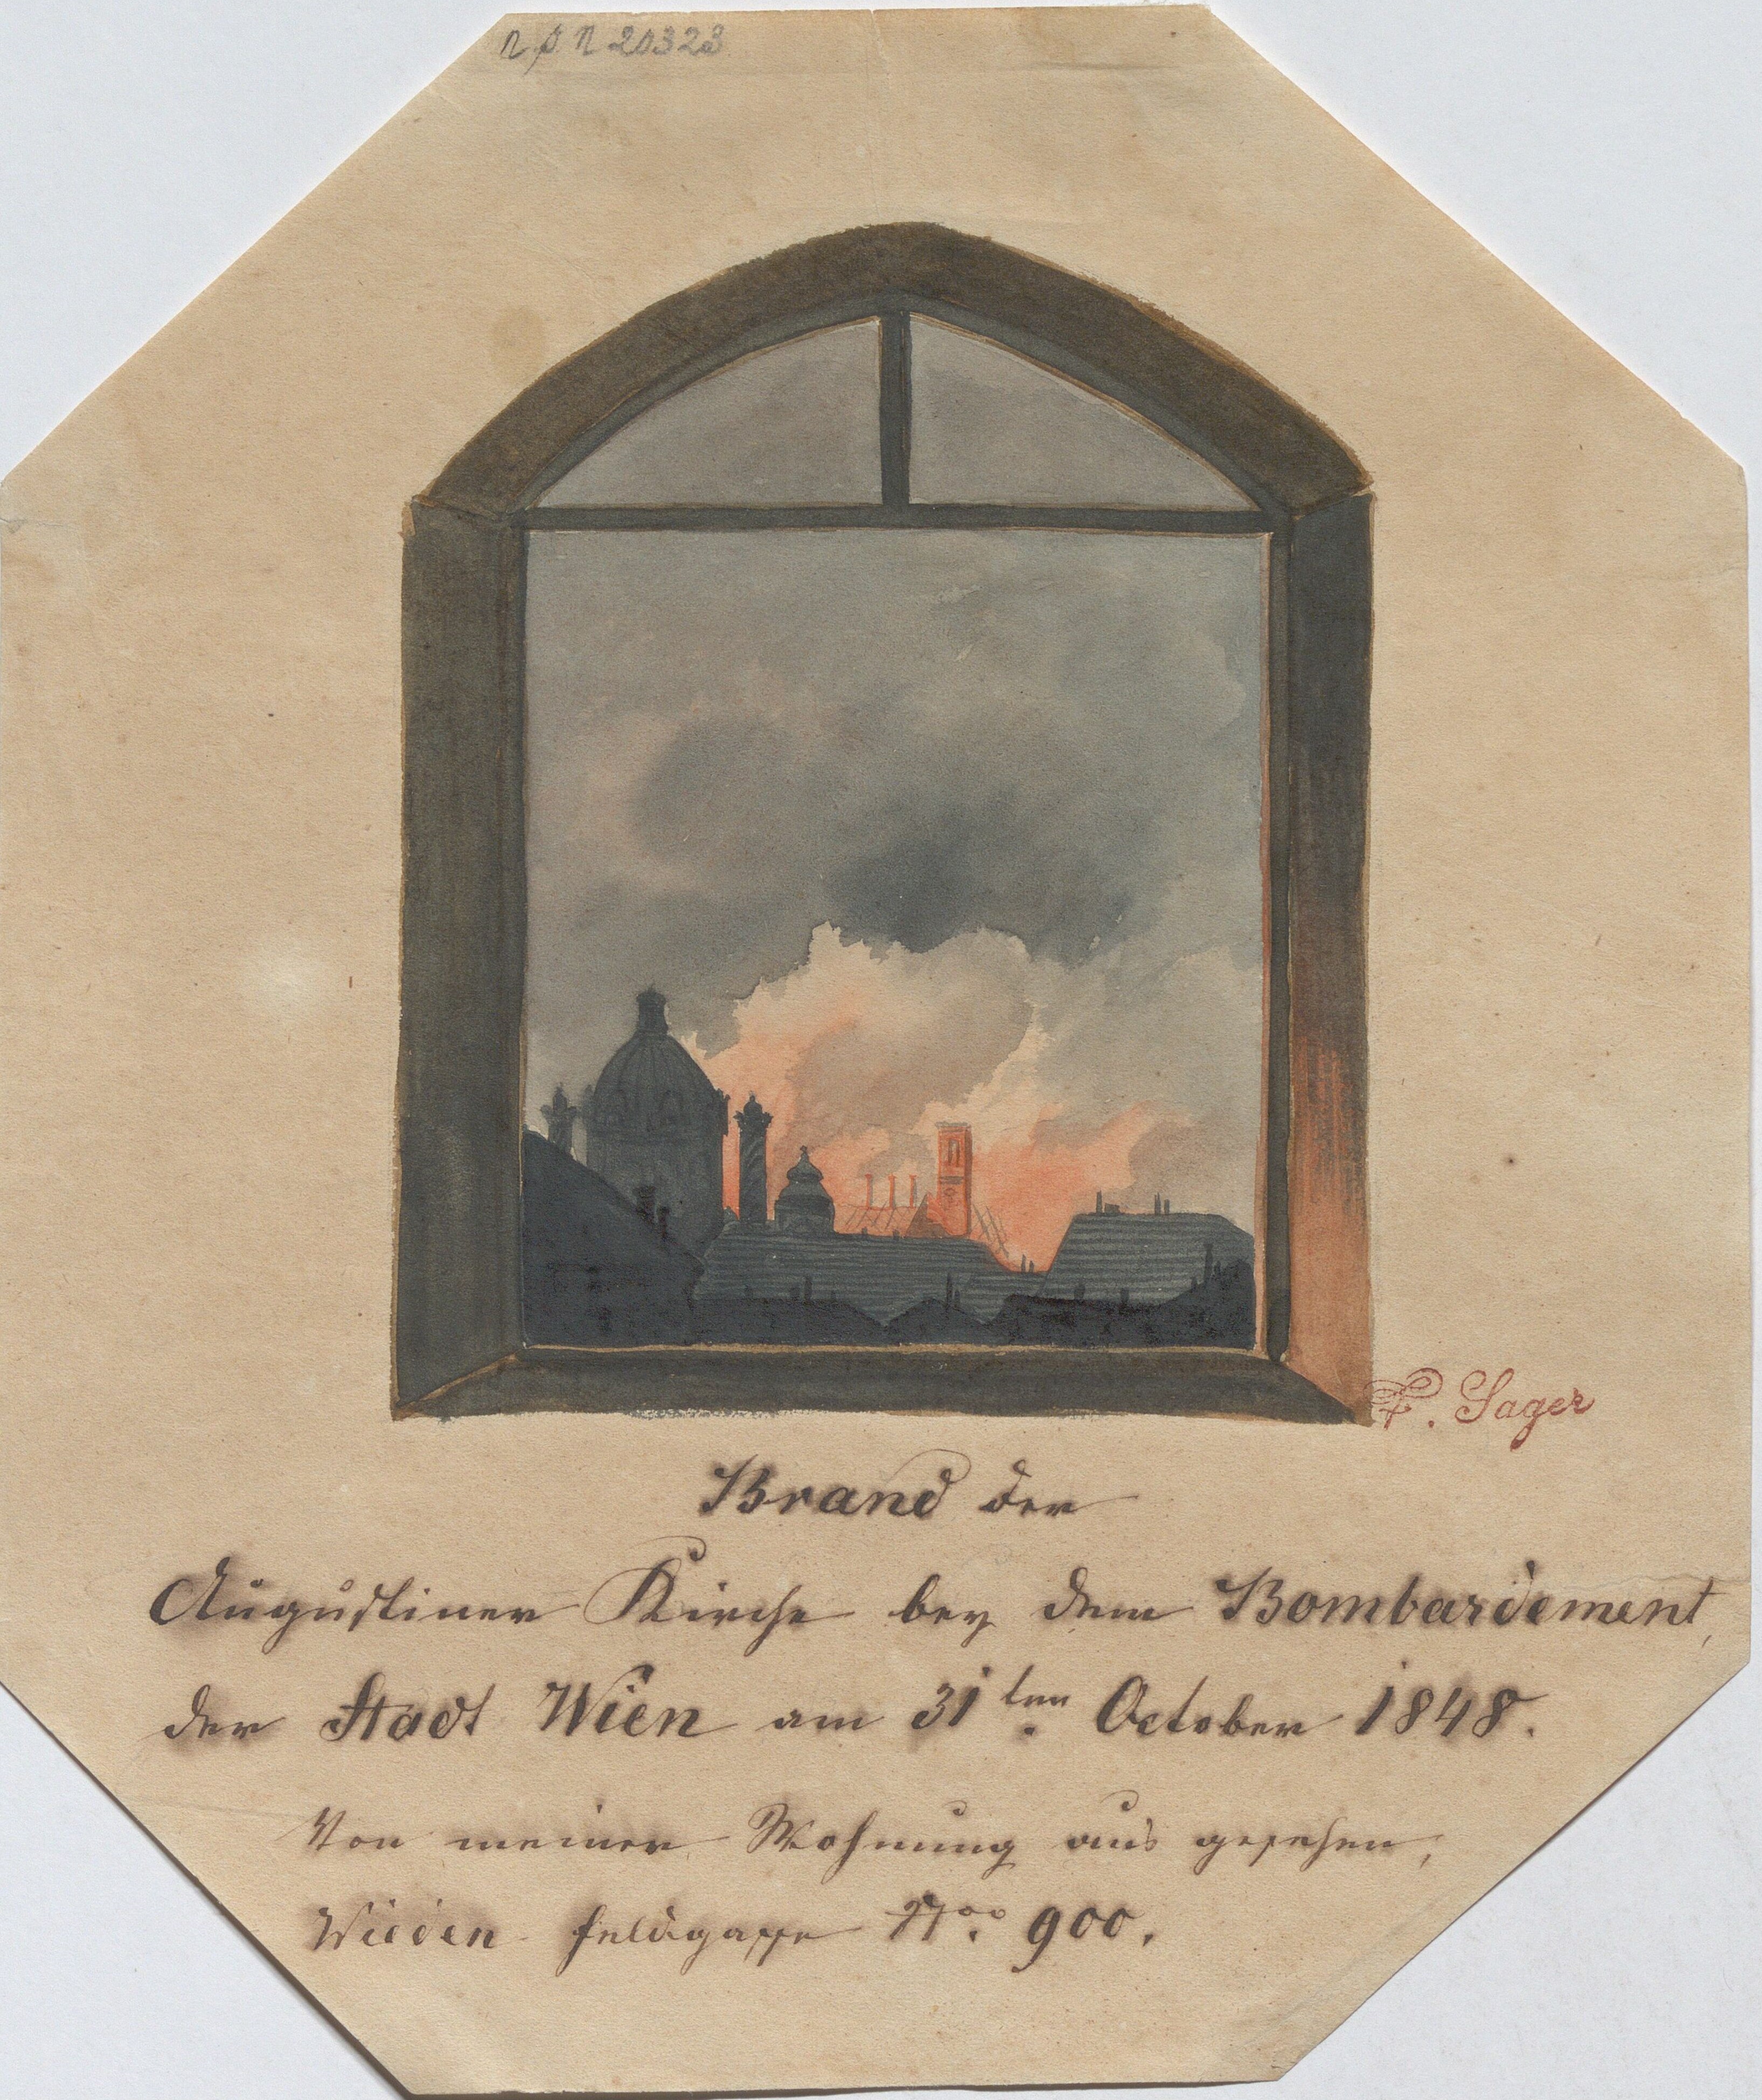 20323
F. Sager
Brand der
Augustiner Kirche bey dem Bombardement,
der Stadt Wien am 31ten. October 1848.
Von meiner Wohnung aus gesehen,
Wieden Feldgasse Nro. 900.